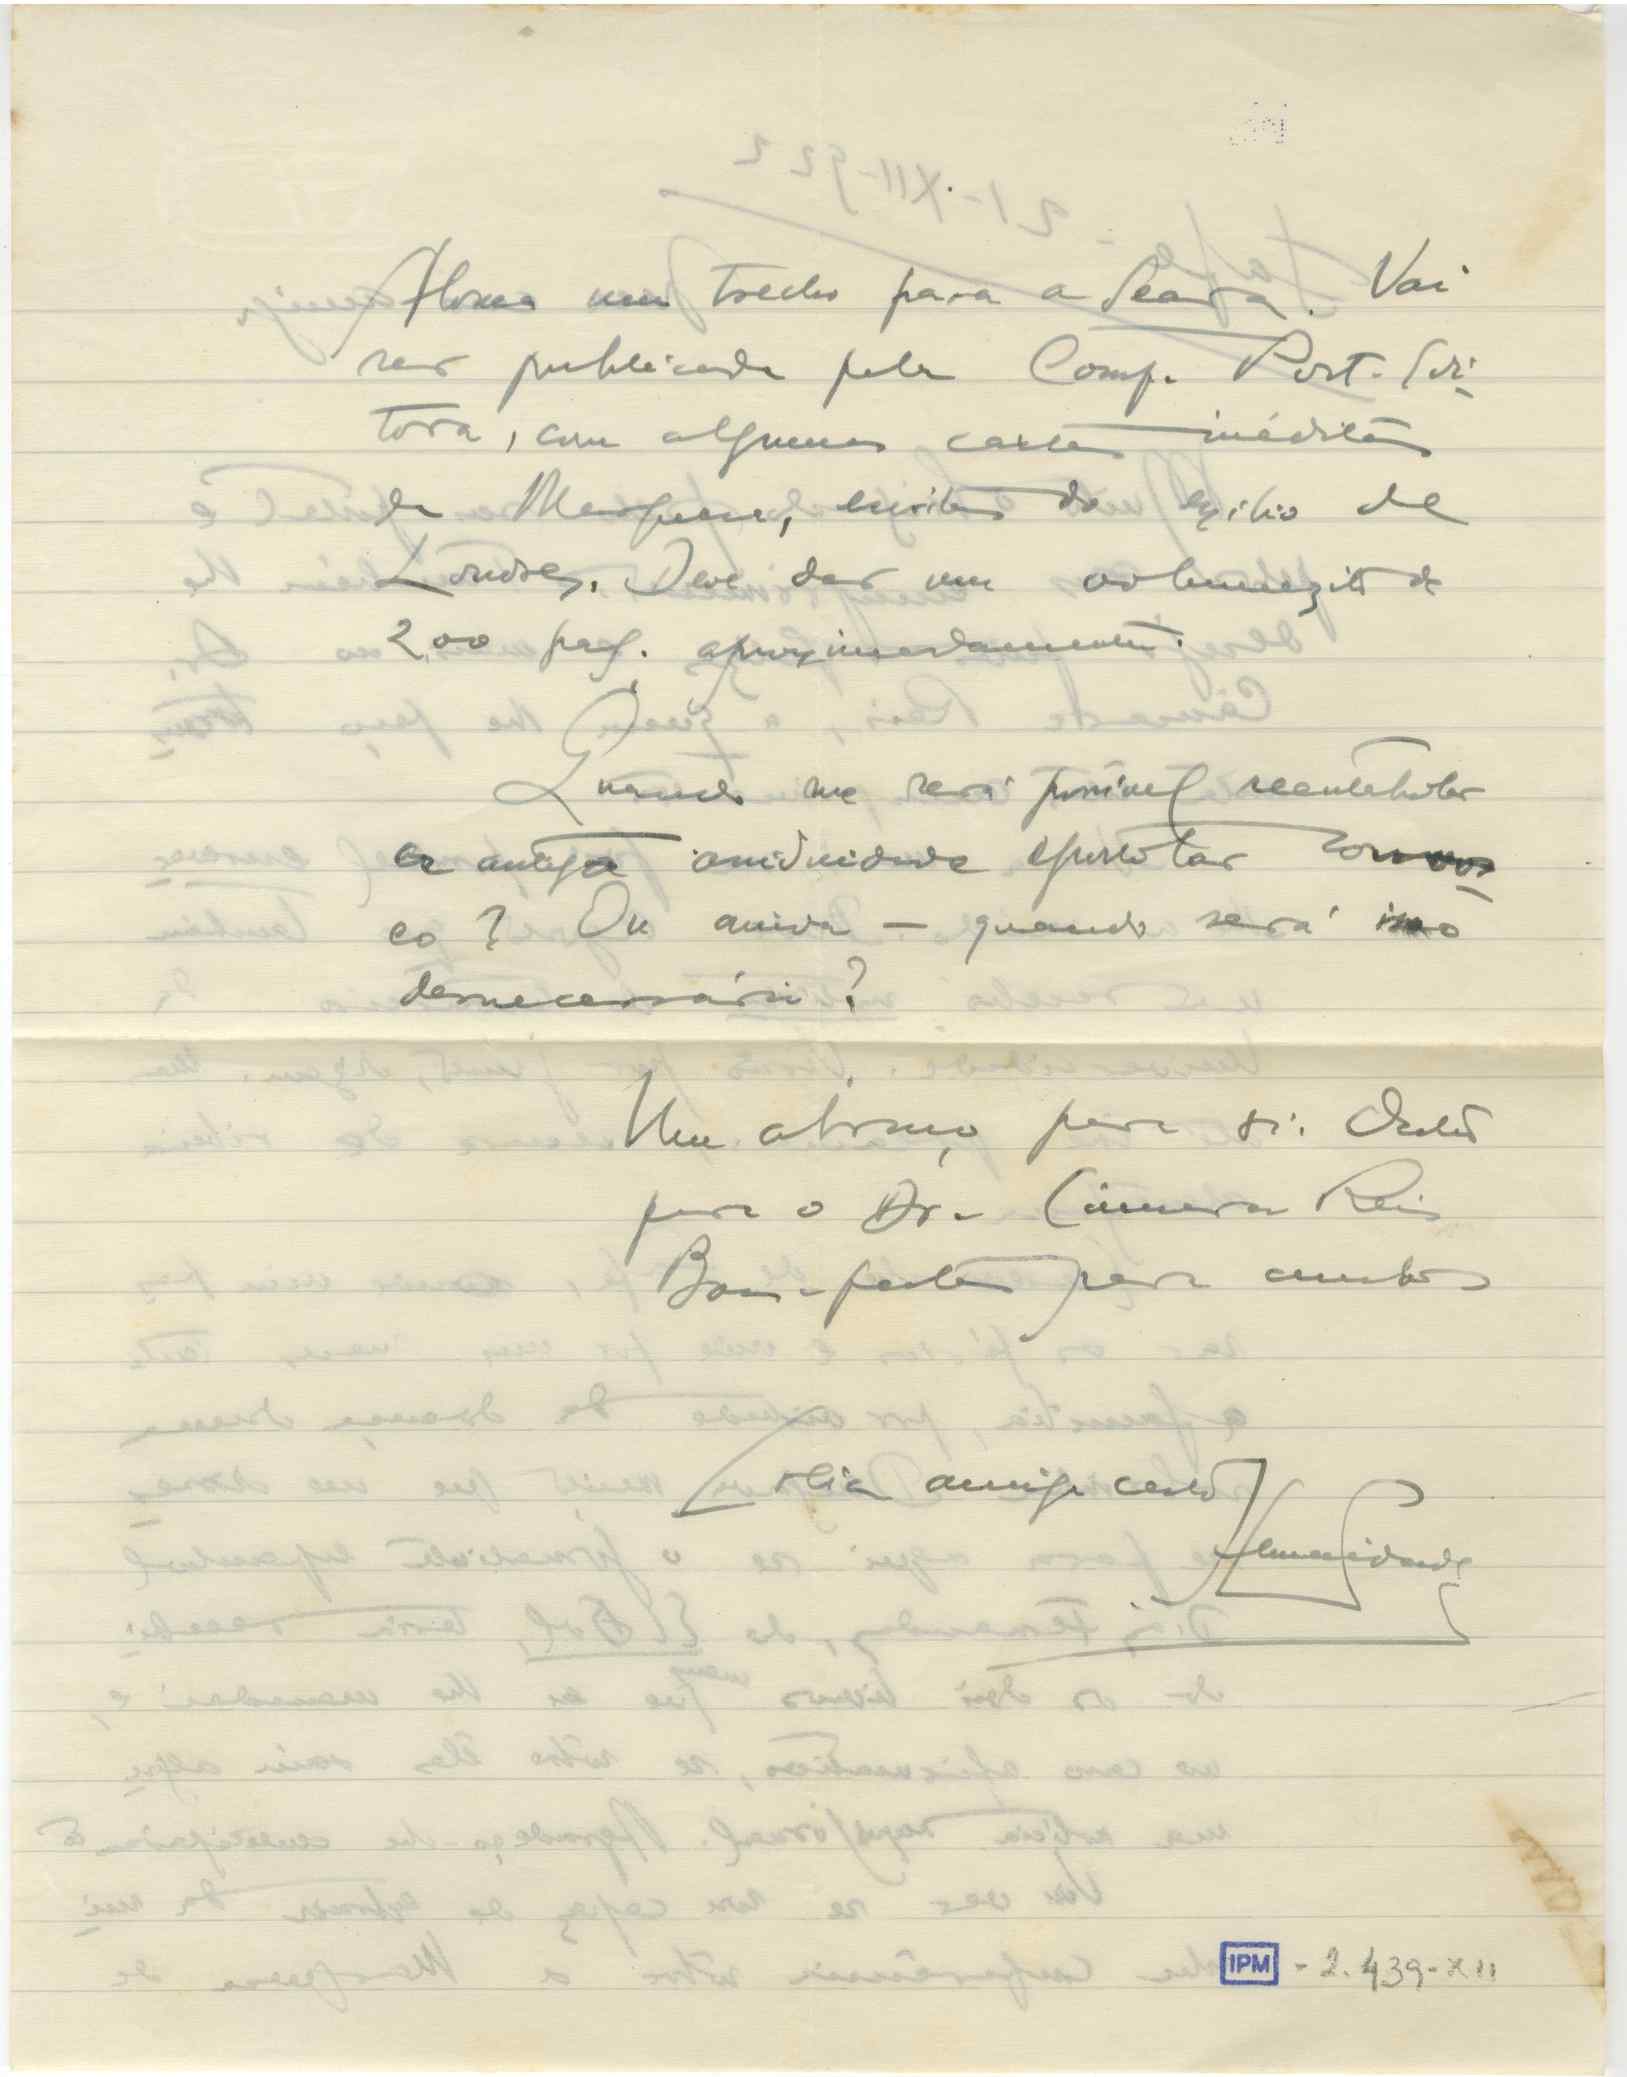 Alorna um trecho para a Seara. Vai
ser publicada pela Comp. Port. Edi-
tora, com algumas cartas inéditas
da Marquesa, escritas do exílio de
Londres. Deve dar um volumezito de
200 pag. aproximadamente.
Quando me será possível reentabolar
a antiga assiduidade epistolar convos-
co? Ou ainda — quando será isso
desnecessário?
Um abraço para si. Outro
para o Dr. Câmara Reis
Boas-festas para ambos
amigo certo
IPM - 2.439-XII